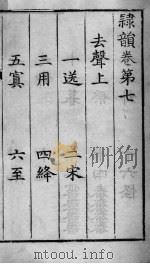 隸韻卷第七
去聲上
一送　二宋
三用　四絳
五寘　六至